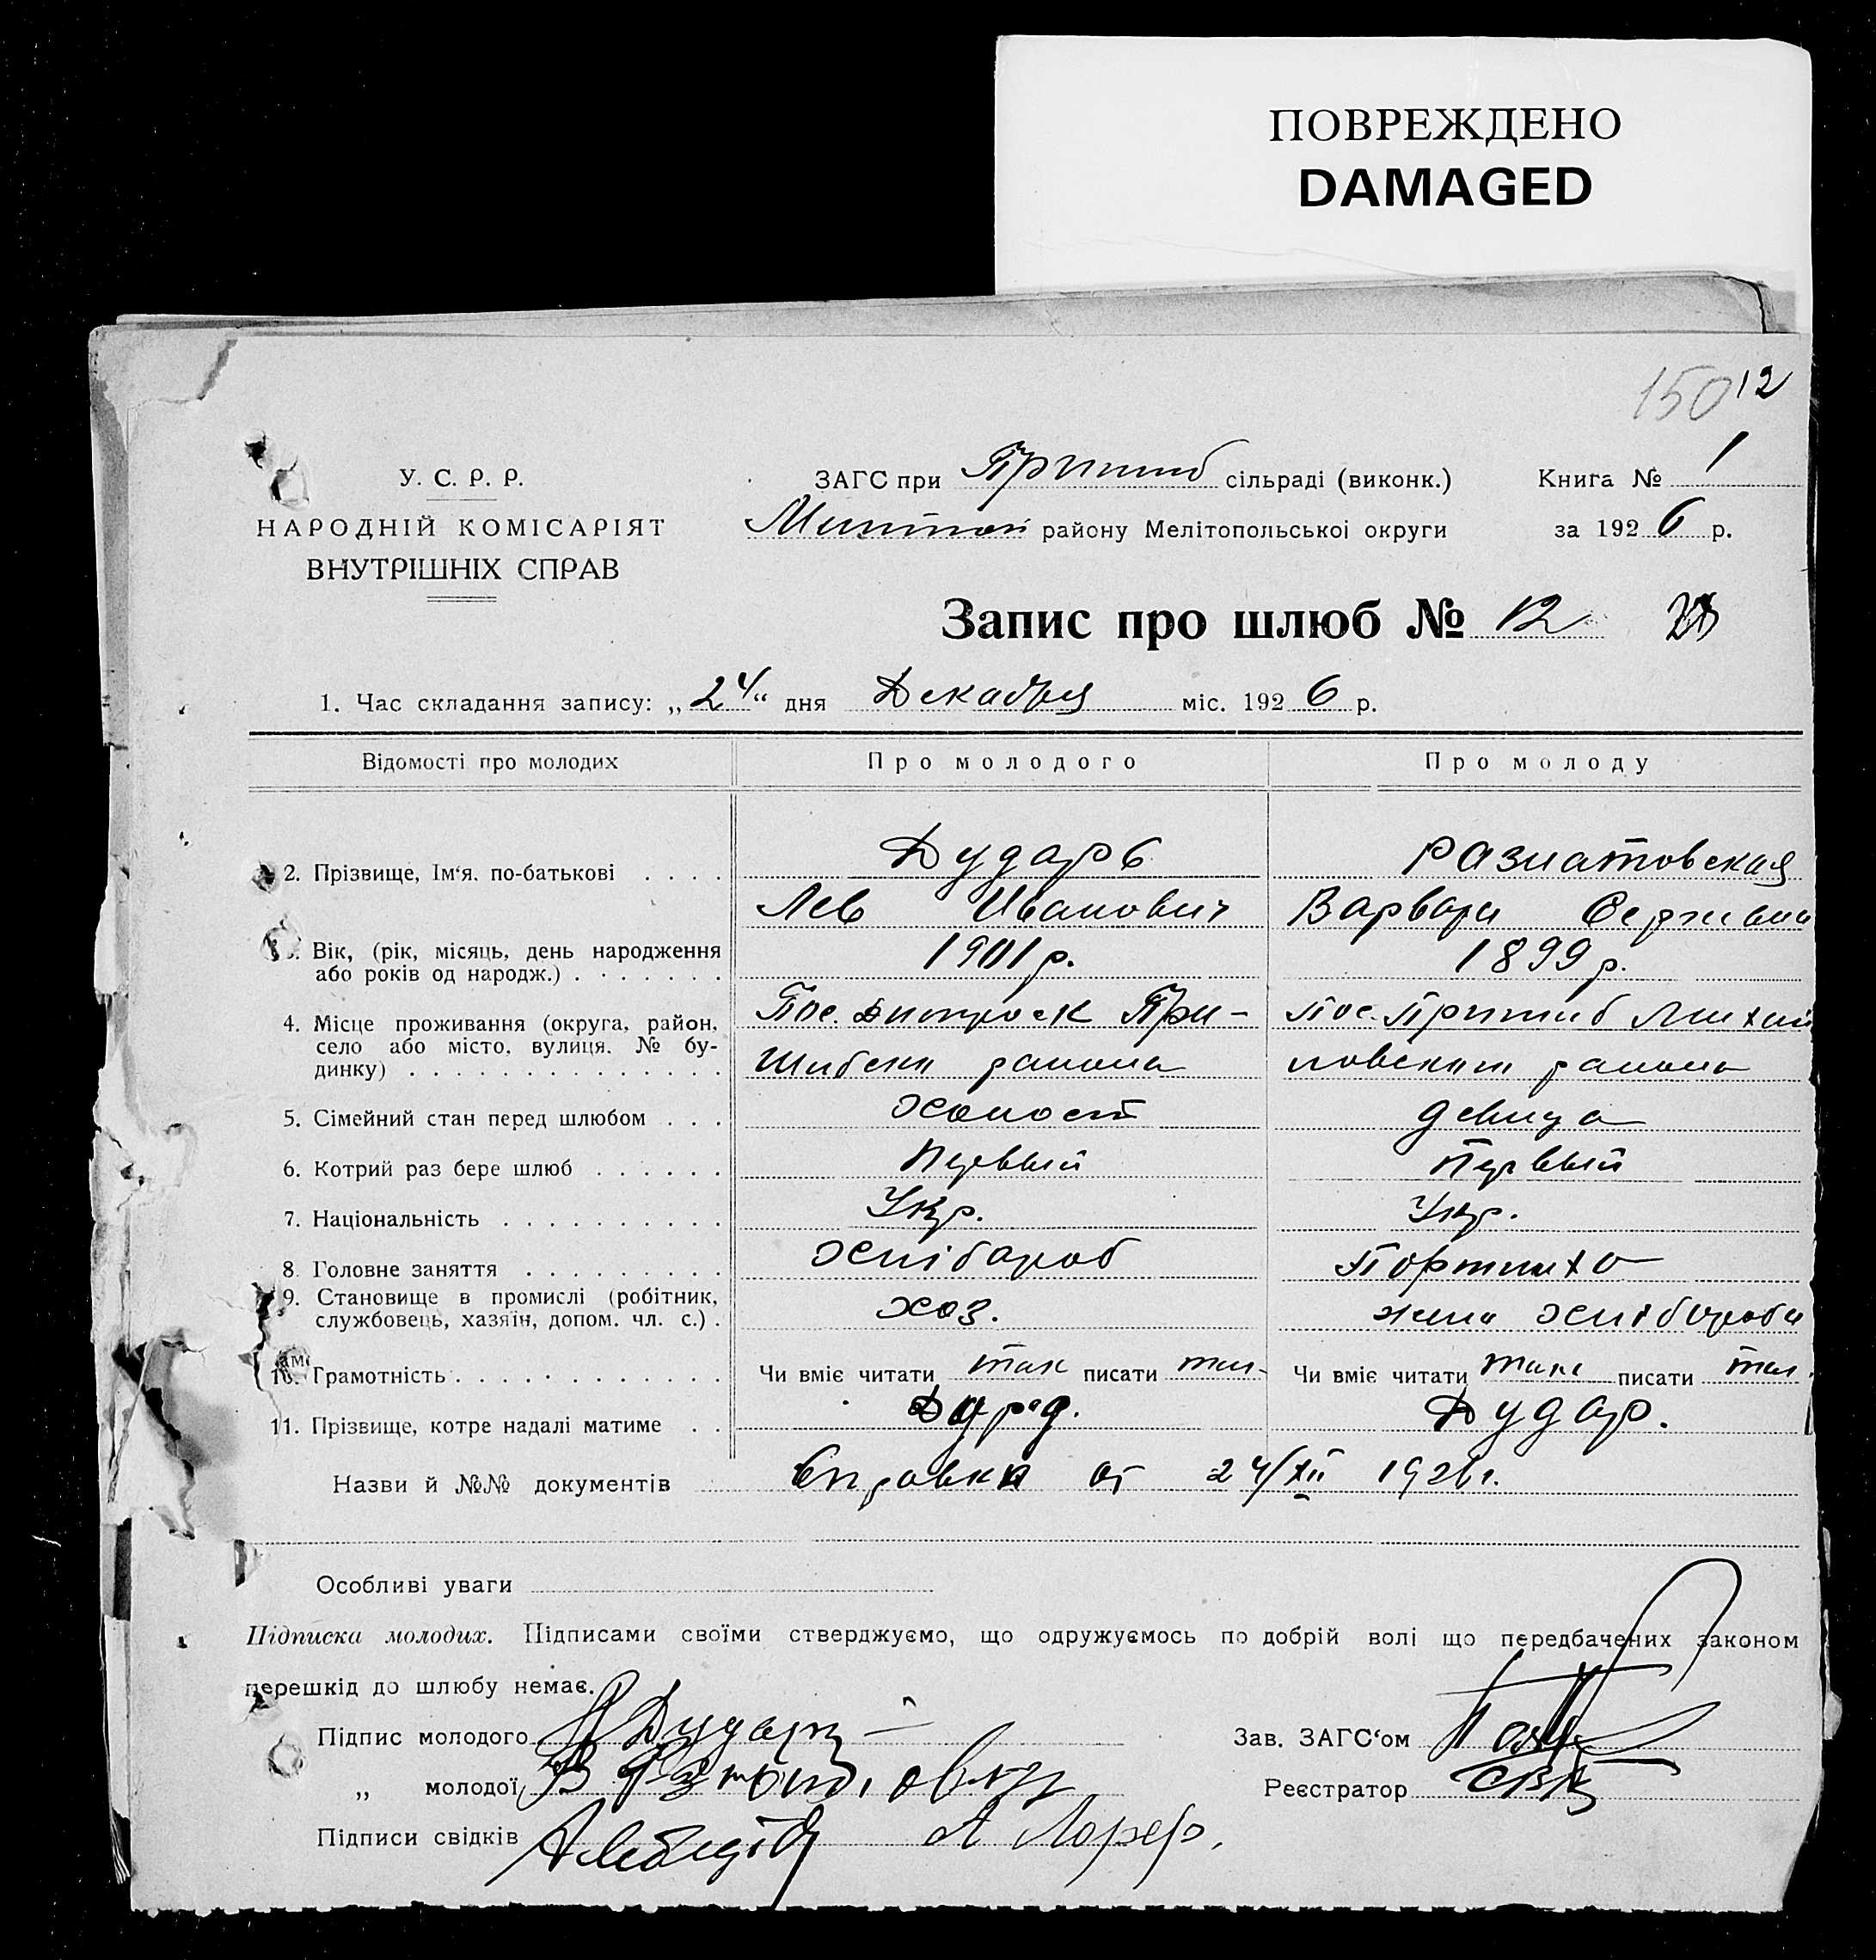 ПОВРЕЖДЕНО
DAMAGED
150 12
У. С. Р. Р.
НАРОДНІЙ КОМІСАРІЯТ
ВНУТРІШНІХ СПРАВ
ЗАГС при Пришиб сільраді (виконк.)
Книга № 1
району Мелітопольської округи
за 1926 р.
Запис про шлюб № 12
1. Час складання запису: „24“ дня Декабря міс. 1926 р.
Відомості про молодих Про молодого Про молоду
Дударь
2. Прізвище, Ім‘я, по-батькові . . . .
Лев Иванович
Варвара
Вік, (рік, місяць, день народження
або років од народж.) . . . . . . .
1901 р. 1899 р.
4. Місце проживання (округа, район,
село або місто, вулиця, № бу-
динку) . . . . . . . . . . . . . .
Пос. При-
шибски района
Пос. Пришиб Михай
ловскаго района
5. Сімейний стан перед шлюбом . . . холост девица
6. Котрий раз бере шлюб . . . . . . первый первый
7. Національність . . . . . . . . . . Укр. Укр.
8. Головне заняття . . . . . . . . . хлібароб Портниха
9. Становище в промислі (робітник,
службовець, хазяїн, допом. чл. с.) .
хоз. жена хлібороба
10. Грамотність . . . . . . . . . . . . Чи вміє читати так писати так Чи вміє читати так писати так
11. Прізвище, котре надалі матиме . . Дудар.
Назви й №№ документів Справка от 24/XII 1926 г.
Особливі уваги
Підписка молодих. Підписами своїми стверджуємо, що одружуємось по добрій волі що передбачених законом
перешкід до шлюбу немає.
Підпис молодого Л Дударь
Зав. ЗАГС‘ом
„ молодої
Реєстратор
Підписи свідків А Лорер.